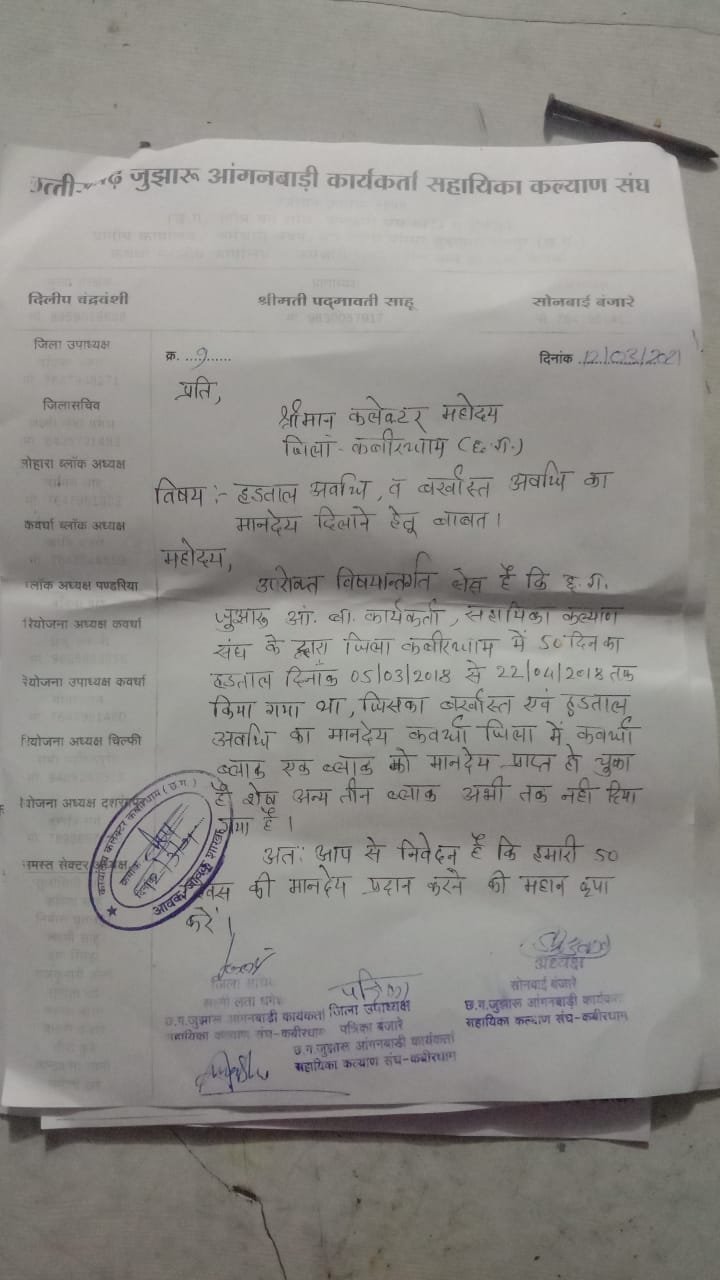 छत्तीसगढ़ जुझारू आंगनबाड़ी कार्यकर्ता सहायिका कल्याण संघ
दिलीप चंद्रवंशी श्रीमती पद्मावती साहू सोनबाई बंजारे
जिला उपाध्यक्ष
जिलासचिव
बोहारा ब्लॉक अध्यक्ष
कवर्धा ब्लॉक अध्यक्ष
ब्लॉक अध्यक्ष पण्डरिया
परियोजना अध्यक्ष कवर्धा
परियोजना उपाध्यक्ष कवर्धा
परियोजना अध्यक्ष चिल्फी
परियोजना अध्यक्ष दशरंगपुर
समस्त सेक्टर अध्यक्ष
क्र. ...9...... दिनांक 12/03/2021
प्रति,
श्रीमान कलेक्टर महोदय
जिला - कबीरधाम (छ.ग.)
विषय :- हडताल अवधि, व बर्खास्त अवधि का
मानदेय दिलाने हेतू बाबत।
महोदय,
उपरोक्त विषयान्तर्गत लेख है कि छ.ग.
जुझारू आं. बा. कार्यकर्ता, सहायिका कल्याण
संघ के द्वारा जिला कबीरधाम में 50 दिन का
हडताल दिनाँक 05/03/2018 से 22/04/2018 तक
किया गया था, जिसका बर्खास्त एवं हडताल
अवधि का मानदेय कवर्धा जिला में कवर्धा
ब्लाक एक ब्लाक को मानदेय प्राप्त हो चुका
है शेष अन्य तीन ब्लाक अभी तक नही दिया
गया है।
अतः आप से निवेदन है कि हमारी 50
दिवस की मानदेय प्रदान करने की महान कृपा
करें।
कार्यालय कलेक्टर कबीरधाम (छ.ग.)
क्रमांक
दिनांक
आवक जावक शाखा
जिला सचिव
छ.ग.जुझारू आंगनबाड़ी कार्यकर्ता
सहायिका कल्याण संघ-कबीरधाम
पत्रिका
जिला उपाध्यक्ष
पत्रिका बंजारे
छ.ग.जुझारू आंगनबाड़ी कार्यकर्ता
सहायिका कल्याण संघ-कबीरधाम
अध्यक्ष
सोनबाई बंजारे
छ.ग.जुझारू आंगनबाड़ी कार्यकर्ता
सहायिका कल्याण संघ-कबीरधाम